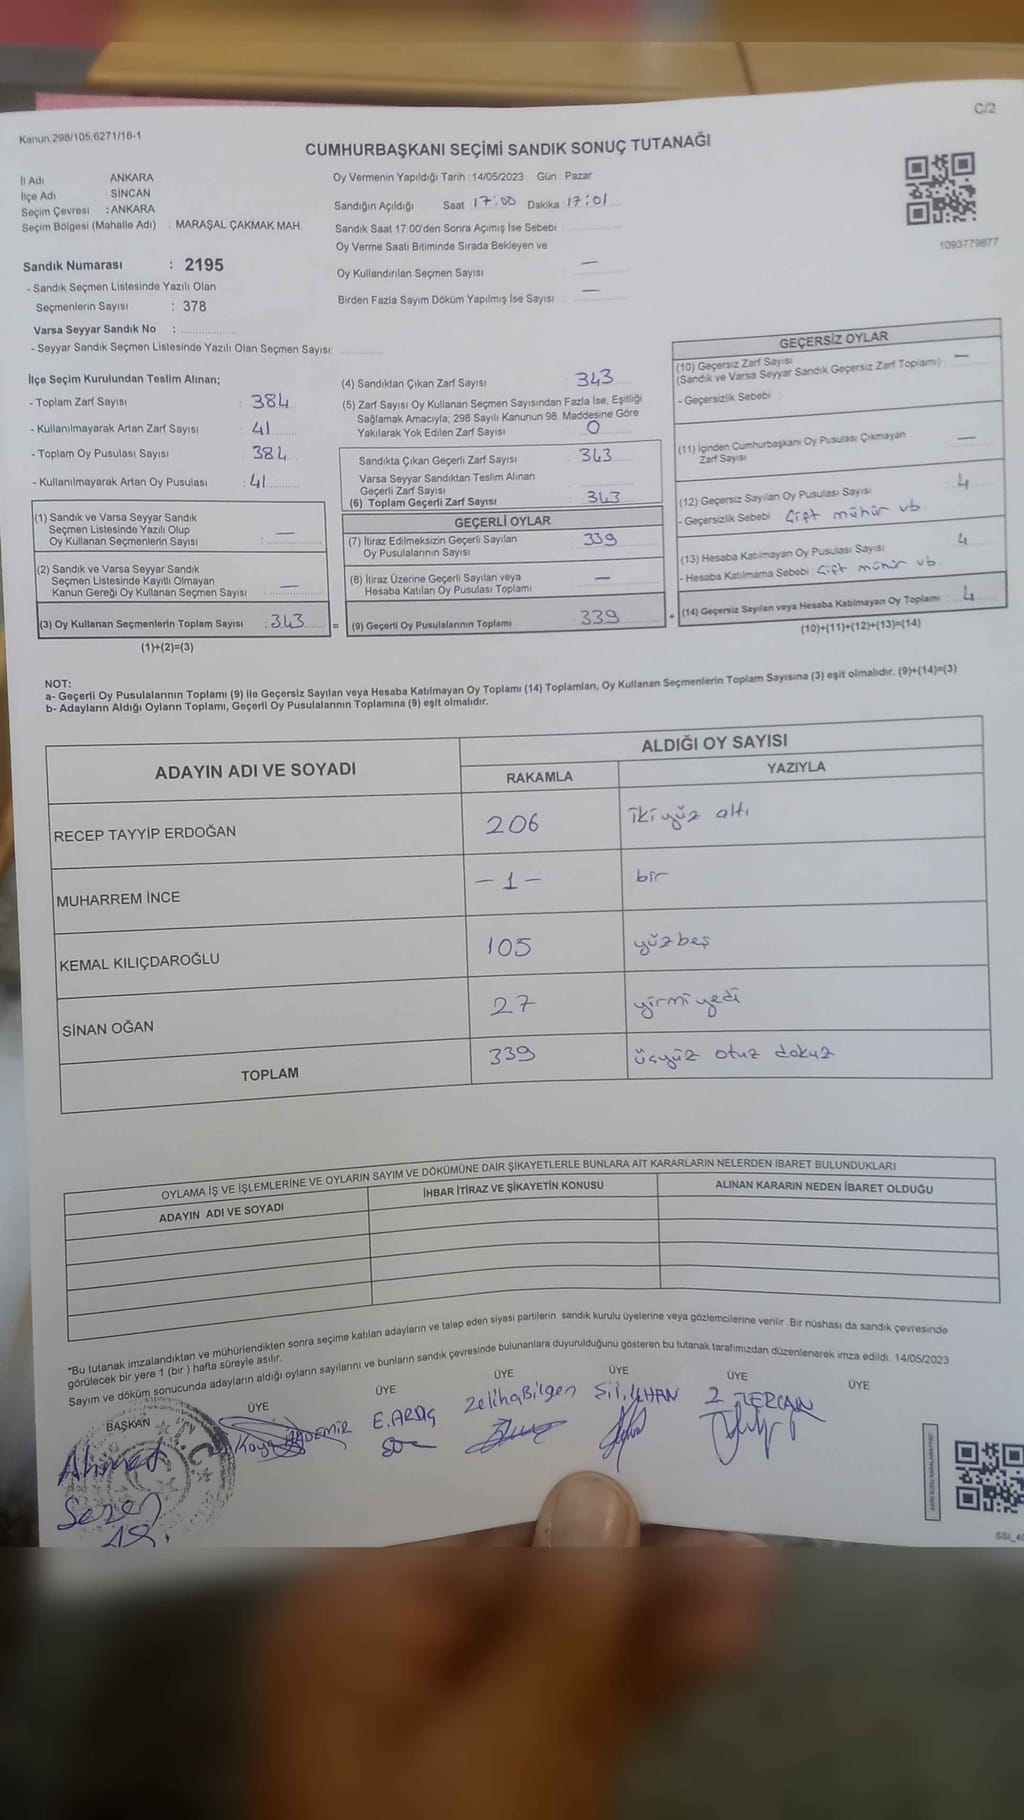 C/2
Kanun.298/105,6271/18-1
CUMHURBAŞKANI SEÇİMİ SANDIK SONUÇ TUTANAĞI
İl Adı : ANKARA
İlçe Adı : SİNCAN
Seçim Çevresi : ANKARA
Seçim Bölgesi (Mahalle Adı) : MARAŞAL ÇAKMAK MAH.
Oy Vermenin Yapıldığı Tarih :14/05/2023 Gün : Pazar
Sandığın Açıldığı Saat 17:00 Dakika 17:01
Sandık Saat 17:00'den Sonra Açımış İse Sebebi :
Oy Verme Saati Bitiminde Sırada Bekleyen ve
Oy Kullandırılan Seçmen Sayısı : —
Birden Fazla Sayım Döküm Yapılmış İse Sayısı : —
1093779877
Sandık Numarası : 2195
- Sandık Seçmen Listesinde Yazılı Olan
Seçmenlerin Sayısı : 378
Varsa Seyyar Sandık No :
- Seyyar Sandık Seçmen Listesinde Yazılı Olan Seçmen Sayısı:
İlçe Seçim Kurulundan Teslim Alınan;
- Toplam Zarf Sayısı : 384
- Kullanılmayarak Artan Zarf Sayısı : 41
- Toplam Oy Pusulası Sayısı : 384
- Kullanılmayarak Artan Oy Pusulası : 41
(1) Sandık ve Varsa Seyyar Sandık
Seçmen Listesinde Yazılı Olup
Oy Kullanan Seçmenlerin Sayısı : —
(2) Sandık ve Varsa Seyyar Sandık
Seçmen Listesinde Kayıtlı Olmayan
Kanun Gereği Oy Kullanan Seçmen Sayısı : —
(3) Oy Kullanan Seçmenlerin Toplam Sayısı : 343
(1)+(2)=(3)
(4) Sandıktan Çıkan Zarf Sayısı : 343
(5) Zarf Sayısı Oy Kullanan Seçmen Sayısından Fazla İse, Eşitliği
Sağlamak Amacıyla; 298 Sayılı Kanunun 98. Maddesine Göre
Yakılarak Yok Edilen Zarf Sayısı : 0
Sandıkta Çıkan Geçerli Zarf Sayısı : 343
Varsa Seyyar Sandıktan Teslim Alınan
Geçerli Zarf Sayısı
(6) Toplam Geçerli Zarf Sayısı : 343
GEÇERLİ OYLAR
(7) İtiraz Edilmeksizin Geçerli Sayılan
Oy Pusulalarının Sayısı : 339
(8) İtiraz Üzerine Geçerli Sayılan veya
Hesaba Katılan Oy Pusulası Toplamı : —
= (9) Geçerli Oy Pusulalarının Toplamı : 339
GEÇERSİZ OYLAR
(10) Geçersiz Zarf Sayısı
(Sandık ve Varsa Seyyar Sandık Geçersiz Zarf Toplamı) : —
- Geçersizlik Sebebi :
(11) İçinden Cumhurbaşkanı Oy Pusulası Çıkmayan
Zarf Sayısı : —
(12) Geçersiz Sayılan Oy Pusulası Sayısı : 4
- Geçersizlik Sebebi : Çift mühür vb
(13) Hesaba Katılmayan Oy Pusulası Sayısı : 4
- Hesaba Katılmama Sebebi : Çift mühür vb.
+ (14) Geçersiz Sayılan veya Hesaba Katılmayan Oy Toplamı : 4
(10)+(11)+(12)+(13)=(14)
NOT:
a- Geçerli Oy Pusulalarının Toplamı (9) ile Geçersiz Sayılan veya Hesaba Katılmayan Oy Toplamı (14) Toplamları, Oy Kullanan Seçmenlerin Toplam Sayısına (3) eşit olmalıdır. (9)+(14)=(3)
b- Adayların Aldığı Oyların Toplamı, Geçerli Oy Pusulalarının Toplamına (9) eşit olmalıdır.
ADAYIN ADI VE SOYADI
ALDIĞI OY SAYISI
RAKAMLA YAZIYLA
RECEP TAYYİP ERDOĞAN 206 ikiyüz altı
MUHARREM İNCE -1- bir
KEMAL KILIÇDAROĞLU 105 yüzbeş
SİNAN OĞAN 27 yirmiyedi
TOPLAM 339 üçyüz otuz dokuz
OYLAMA İŞ VE İŞLEMLERİNE VE OYLARIN SAYIM VE DÖKÜMÜNE DAİR ŞİKAYETLERLE BUNLARA AİT KARARLARIN NELERDEN İBARET BULUNDUKLARI
ADAYIN ADI VE SOYADI İHBAR İTİRAZ VE ŞİKAYETİN KONUSU ALINAN KARARIN NEDEN İBARET OLDUĞU
*Bu tutanak imzalandıktan ve mühürlendikten sonra seçime katılan adayların ve talep eden siyasi partilerin sandık kurulu üyelerine veya gözlemcilerine verilir. Bir nüshası da sandık çevresinde
görülecek bir yere 1 (bir ) hafta süreyle asılır.
Sayım ve döküm sonucunda adayların aldığı oyların sayılarını ve bunların sandık çevresinde bulunanlara duyurulduğunu gösteren bu tutanak tarafımızdan düzenlenerek imza edildi. 14/05/2023
BAŞKAN ÜYE ÜYE ÜYE ÜYE ÜYE ÜYE
Ahmed
Sezen
E.ARDIÇ
Zeliha Bilgen